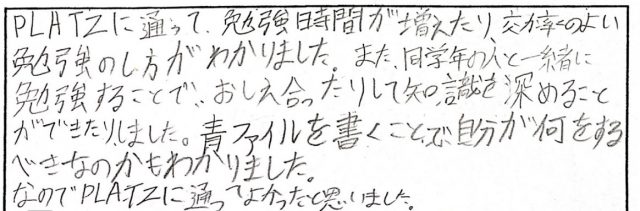 PLATZに通って、勉強時間が増えたり、効率のよい
勉強のし方がわかりました。また、同学年の人と一緒に
勉強することで、おしえ合ったりして知識を深めること
ができたりしました。青ファイルを書くことで自分が何をする
べきなのかもわかりました。
なのでPLATZに通ってよかったと思いました。